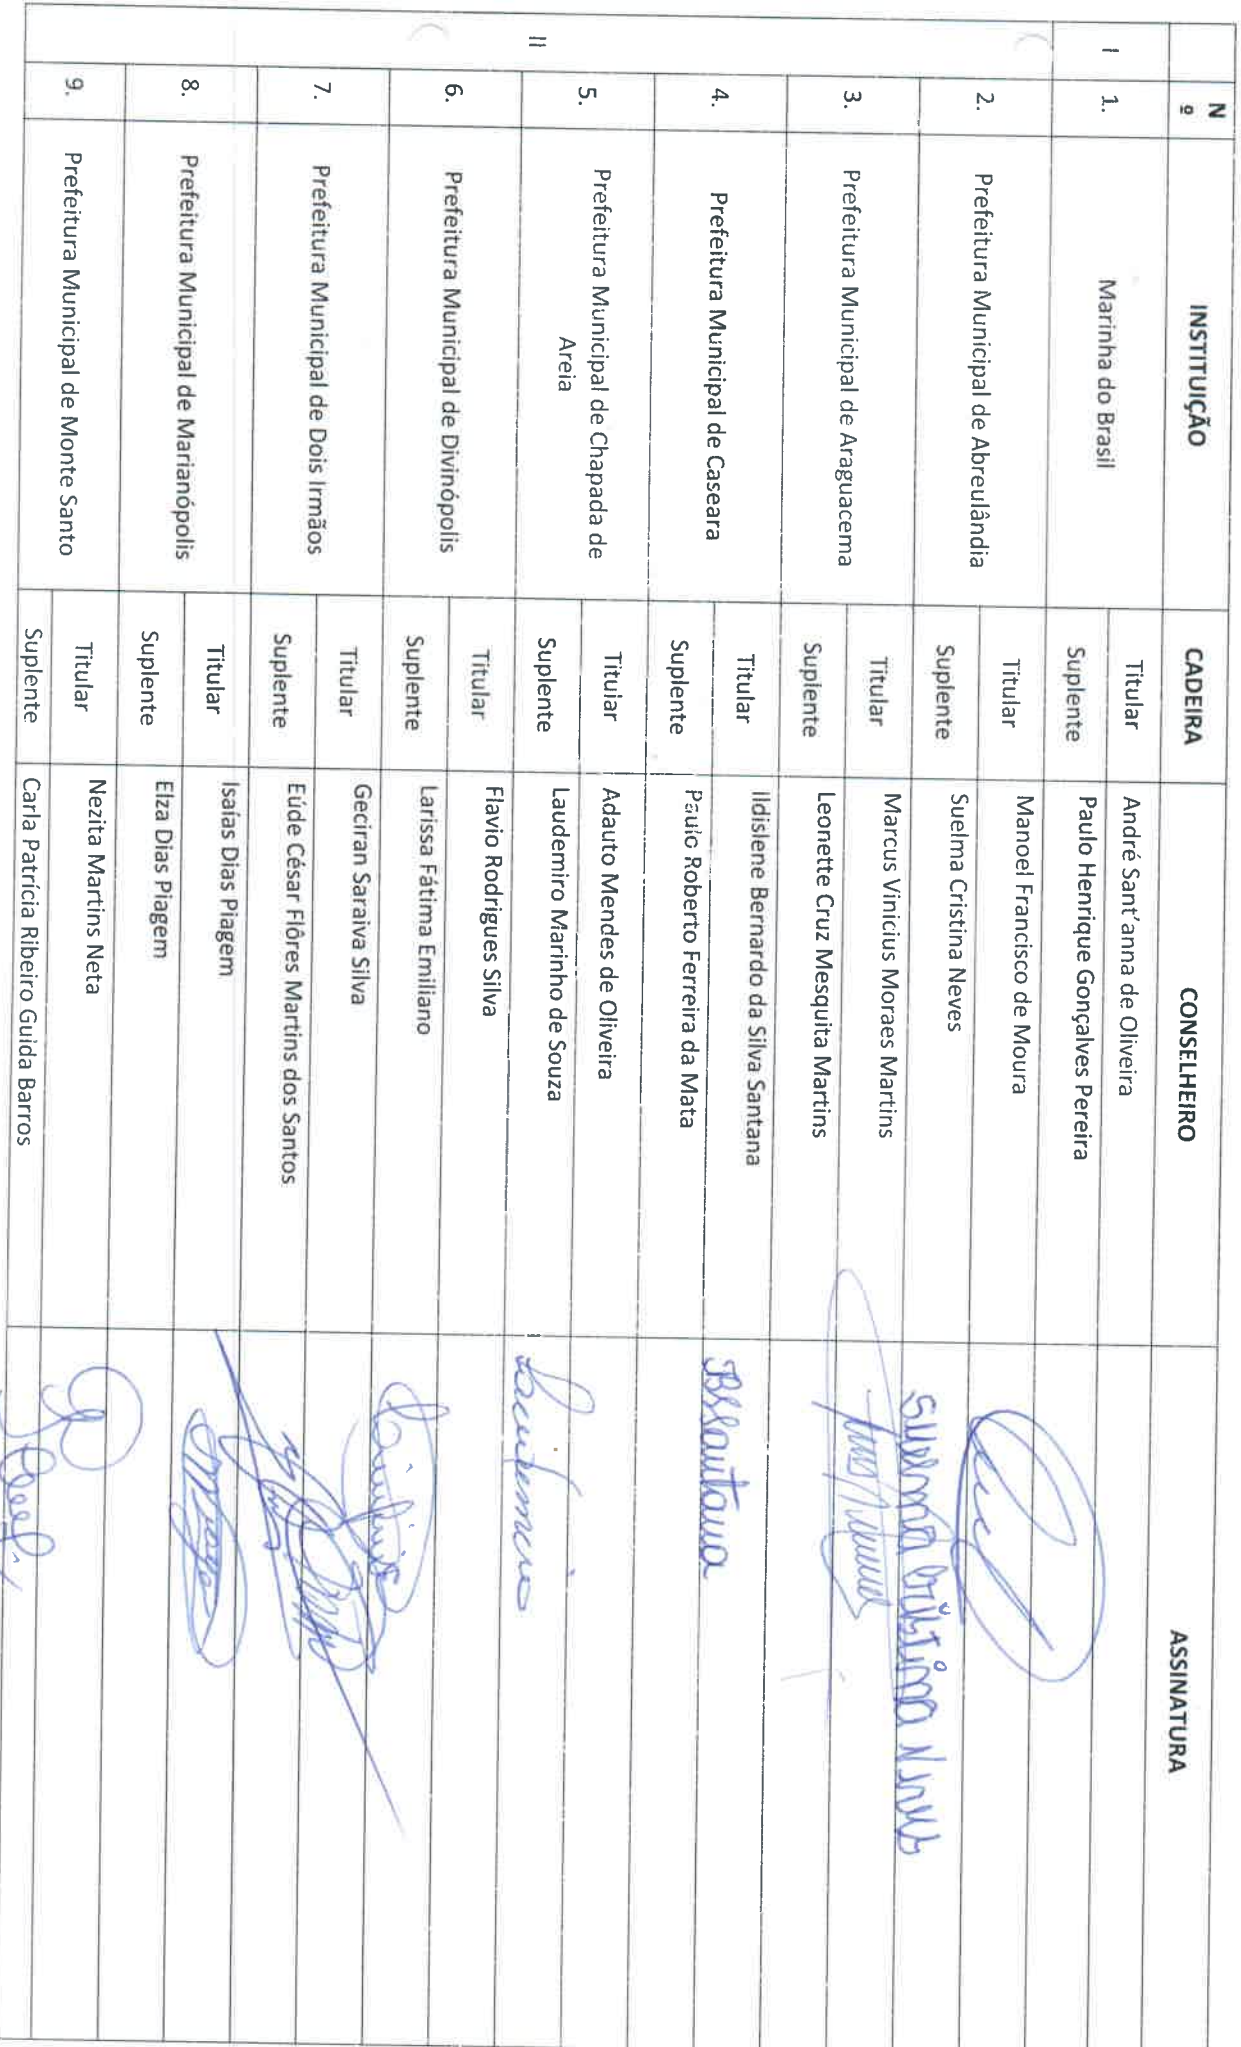 Nº INSTITUIÇÃO CADEIRA CONSELHEIRO ASSINATURA
I 1. Marinha do Brasil Titular André Sant'anna de Oliveira
Suplente Paulo Henrique Gonçalves Pereira
II 2. Prefeitura Municipal de Abreulândia Titular Manoel Francisco de Moura
Suplente Suelma Cristina Neves Suelma Cristina Neves
3. Prefeitura Municipal de Araguacema Titular Marcus Vinicius Moraes Martins
Suplente Leonette Cruz Mesquita Martins
4. Prefeitura Municipal de Caseara Titular Ildislene Bernardo da Silva Santana
Suplente Paulo Roberto Ferreira da Mata BSSantana
5. Prefeitura Municipal de Chapada de
Areia
Titular Adauto Mendes de Oliveira
Suplente Laudemiro Marinho de Souza
6. Prefeitura Municipal de Divinópolis Titular Flavio Rodrigues Silva
Suplente Larissa Fátima Emiliano
7. Prefeitura Municipal de Dois Irmãos Titular Geciran Saraiva Silva
Suplente Eúde César Flôres Martins dos Santos
8. Prefeitura Municipal de Marianópolis Titular Isaías Dias Piagem
Suplente Elza Dias Piagem
9. Prefeitura Municipal de Monte Santo Titular Nezita Martins Neta
Suplente Carla Patrícia Ribeiro Guida Barros